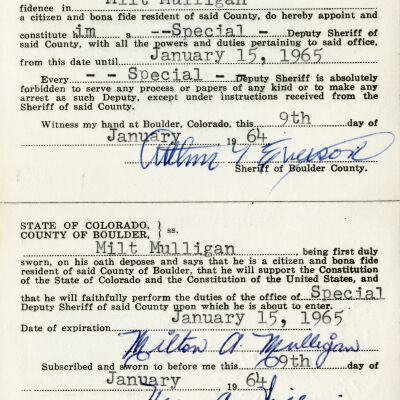 fidence in Milt Mulligan
a citizen and bona fide resident of said County, do hereby appoint and
constitute im a --Special - Deputy Sheriff of
said County, with all the powers and duties pertaining to said office,
from this date until January 15, 1965
Every - - Special - Deputy Sheriff is absolutely
forbidden to serve any process or papers of any kind or to make any
arrest as such Deputy, except under instructions received from the
Sheriff of said County.
Witness my hand at Boulder, Colorado, this 9th day of
January, 19 64
Arthur T Everson
Sheriff of Boulder County.
STATE OF COLORADO, }
COUNTY OF BOULDER, } ss.
Milt Mulligan, being first duly
sworn, on his oath deposes and says that he is a citizen and bona fide
resident of said County of Boulder, that he will support the Constitution
of the State of Colorado and the Constitution of the United States, and
that he will faithfully perform the duties of the office of Special
Deputy Sheriff of said County upon which he is about to enter.
Date of expiration January 15, 1965
Milton A. Mulligan
Subscribed and sworn to before me this 9th day of
January, 19 64